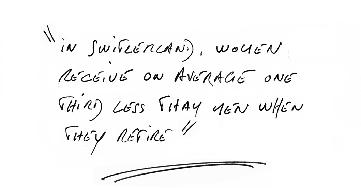 "IN SWITZERLAND, WOMEN
RECEIVE ON AVERAGE ONE
THIRD LESS THAN MEN WHEN
THEY RETIRE"